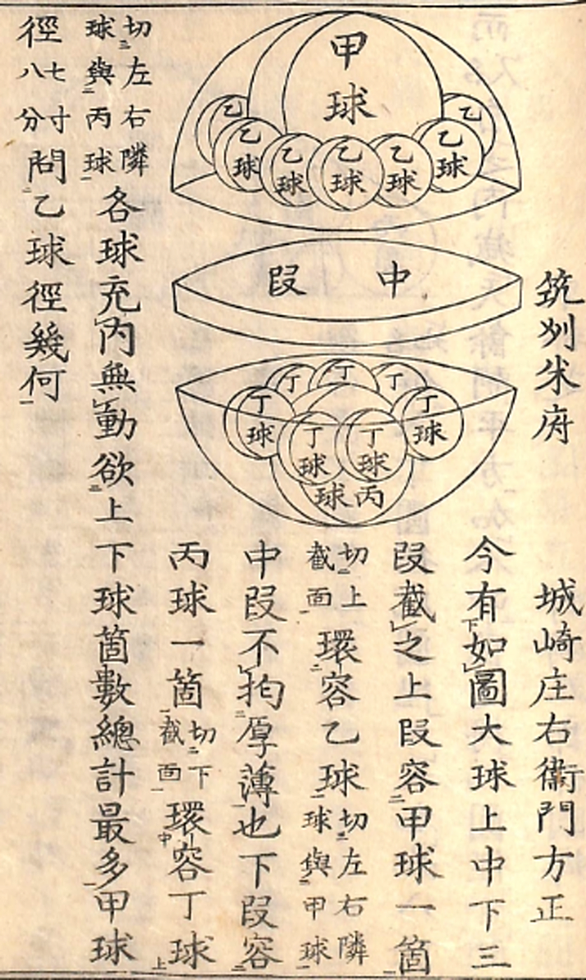 筑刕米府　城崎庄右衞門方正
今有如圖大球上中下三
段截之上段容甲球一箇
切上截面環容乙球切左右隣球與甲球
中段不拘厚薄也下段容
丙球一箇切下截面環容丁球
切左右隣球與丙球各球充内無動欲上下球箇數總計最多甲球
徑七寸八分問乙球徑幾何
甲球
乙
乙
乙球
乙球
乙球
乙球
乙球
中段
丁
丁
丁
丁球
丁球
丁球
丁球
丙球